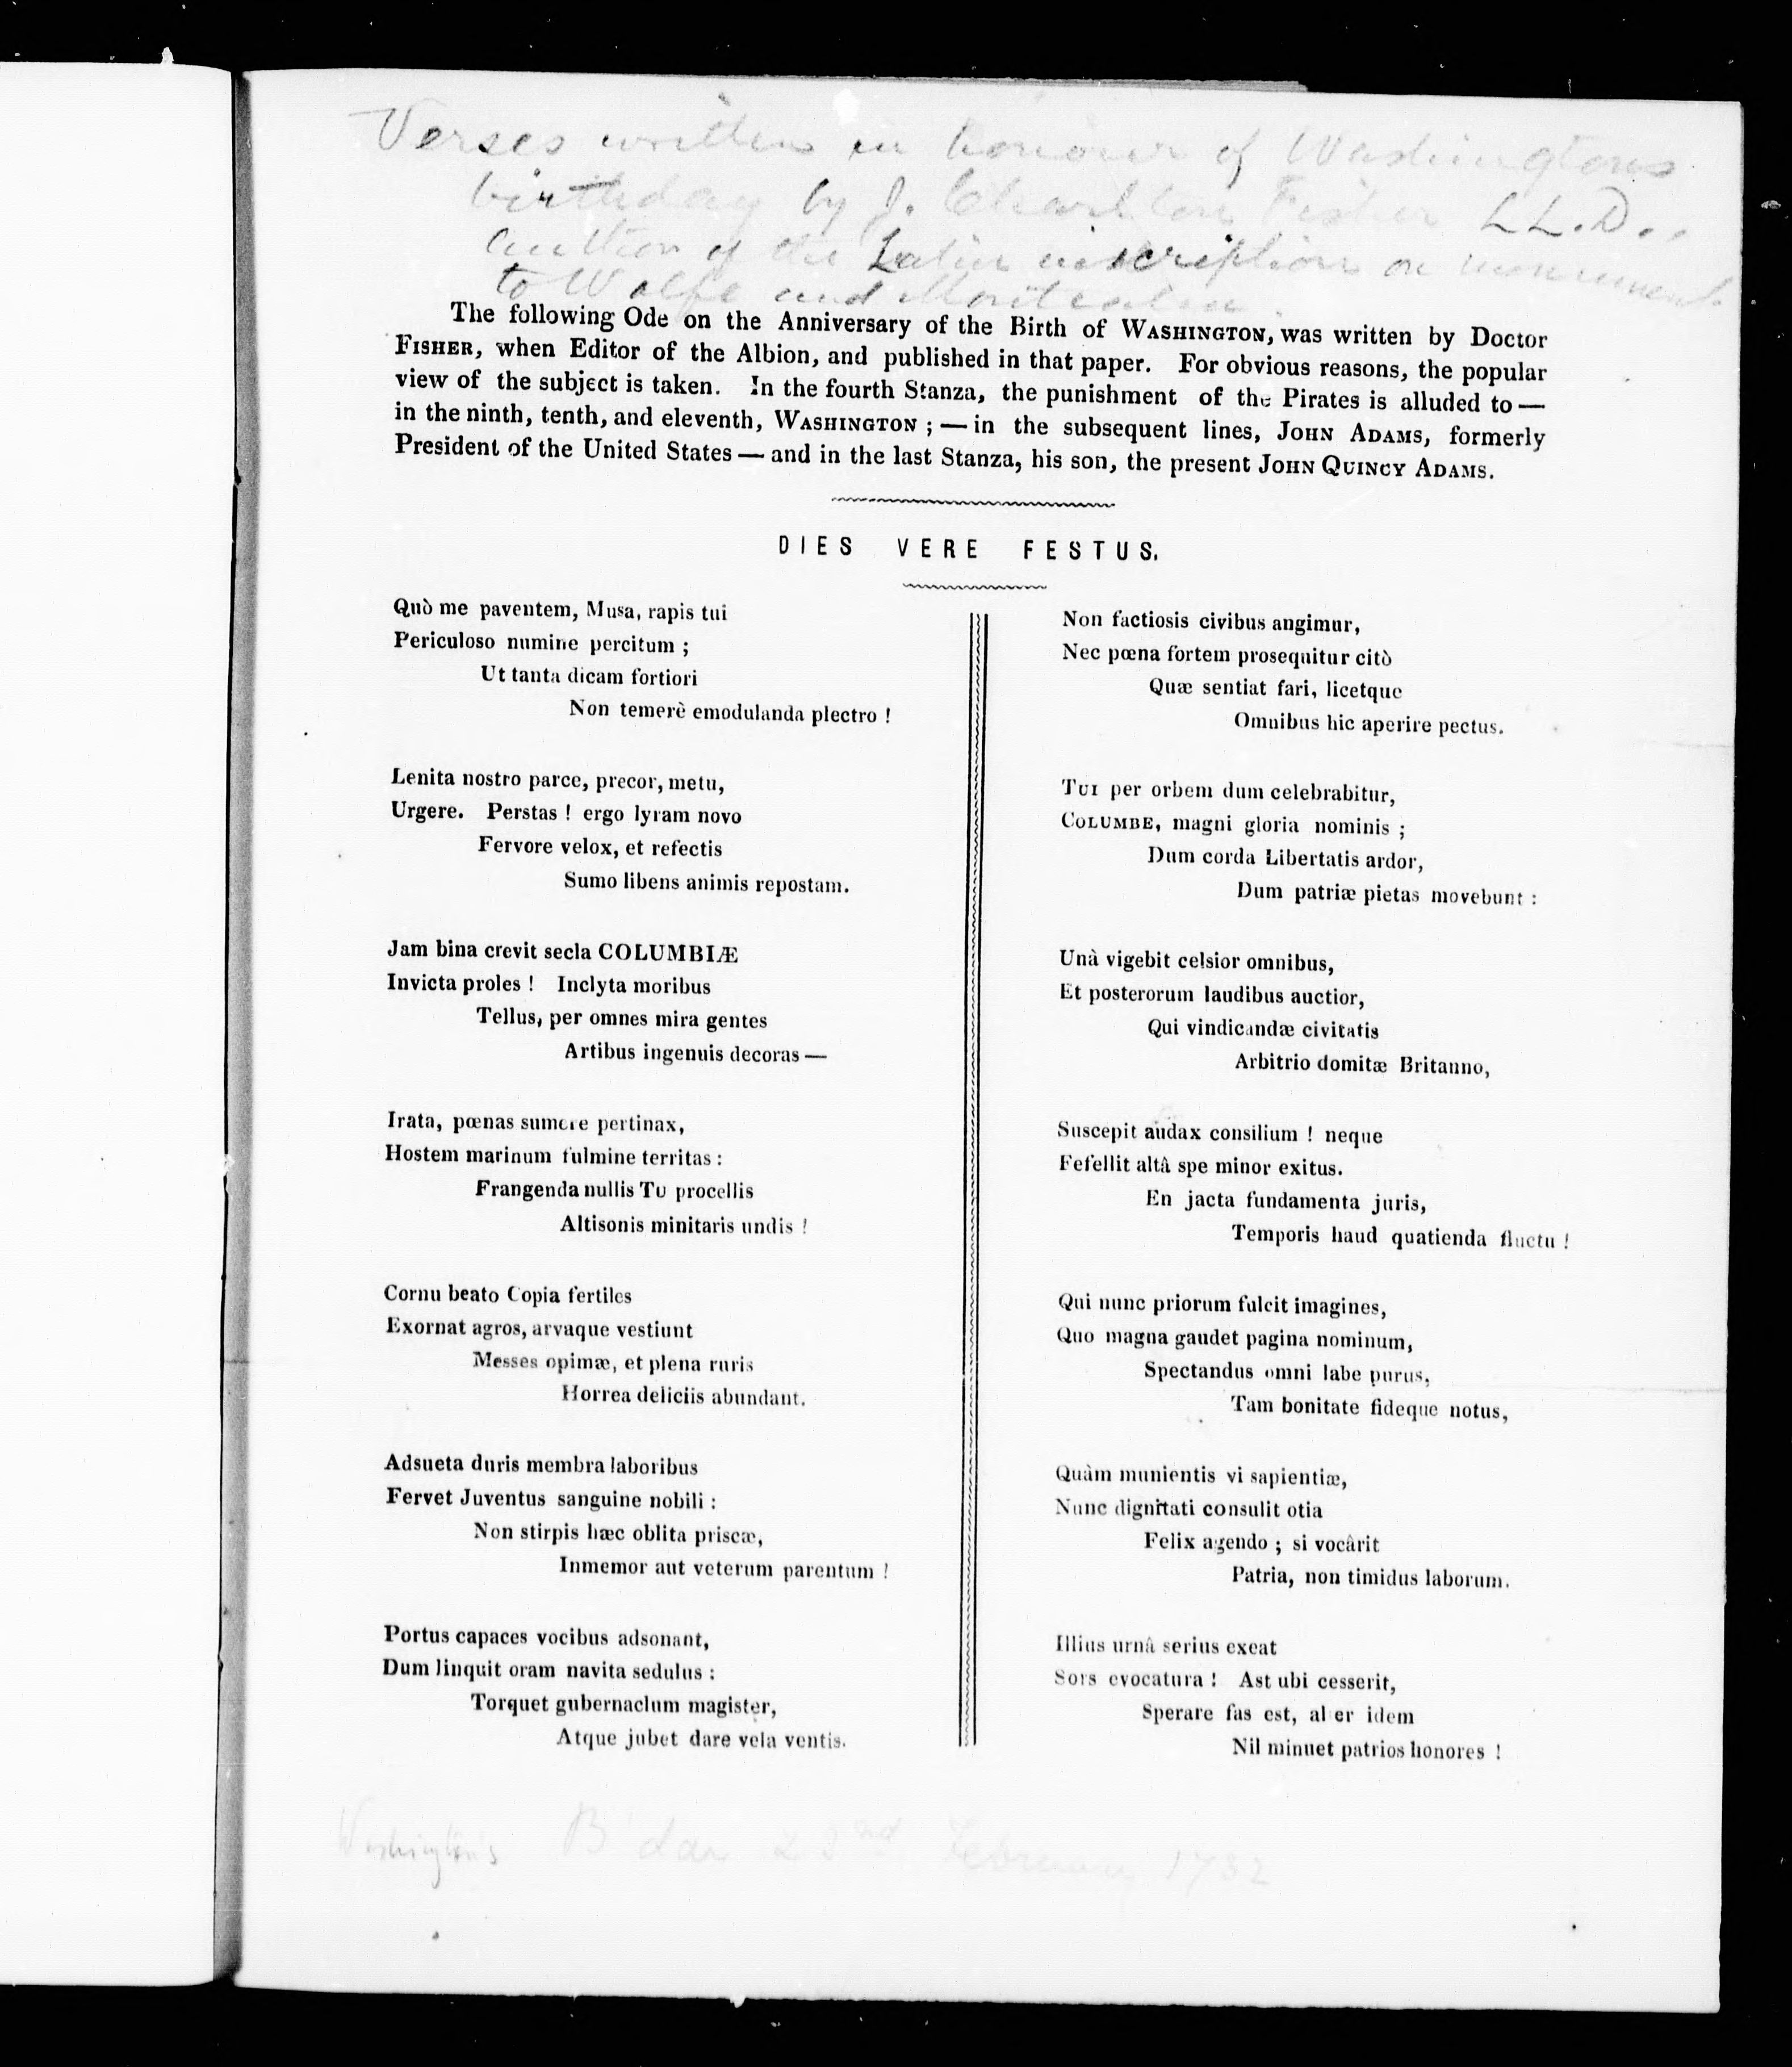 Verses written in honour of Washingtons
birthday by J. Charlton Fisher LL.D.,
author of the Latin inscription on monument
to Wolfe and Montcalm.
The following Ode on the Anniversary of the Birth of WASHINGTON, was written by Doctor
FISHER, when Editor of the Albion, and published in that paper. For obvious reasons, the popular
view of the subject is taken. In the fourth Stanza, the punishment of the Pirates is alluded to —
in the ninth, tenth, and eleventh, WASHINGTON ; — in the subsequent lines, JOHN ADAMS, formerly
President of the United States — and in the last Stanza, his son, the present JOHN QUINCY ADAMS.
DIES VERE FESTUS.
Quò me paventem, Musa, rapis tui
Periculoso numine percitum ;
Ut tanta dicam fortiori
Non temerè emodulanda plectro !
Lenita nostro parce, precor, metu,
Urgere. Perstas ! ergo lyram novo
Fervore velox, et refectis
Sumo libens animis repostam.
Jam bina crevit secla COLUMBIÆ
Invicta proles ! Inclyta moribus
Tellus, per omnes mira gentes
Artibus ingenuis decoras —
Irata, pœnas sumere pertinax,
Hostem marinum fulmine territas :
Frangenda nullis TU procellis
Altisonis minitaris undis !
Cornu beato Copia fertiles
Exornat agros, arvaque vestiunt
Messes opimæ, et plena ruris
Horrea deliciis abundant.
Adsueta duris membra laboribus
Fervet Juventus sanguine nobili :
Non stirpis hæc oblita priscæ,
Inmemor aut veterum parentum !
Portus capaces vocibus adsonant,
Dum linquit oram navita sedulus :
Torquet gubernaclum magister,
Atque jubet dare vela ventis.
Non factiosis civibus angimur,
Nec pœna fortem prosequitur citò
Quæ sentiat fari, licetque
Omnibus hic aperire pectus.
TUI per orbem dum celebrabitur,
COLUMBE, magni gloria nominis ;
Dum corda Libertatis ardor,
Dum patriæ pietas movebunt :
Unà vigebit celsior omnibus,
Et posterorum laudibus auctior,
Qui vindicandæ civitatis
Arbitrio domitæ Britanno,
Suscepit audax consilium ! neque
Fefellit altâ spe minor exitus.
En jacta fundamenta juris,
Temporis haud quatienda fluctu !
Qui nunc priorum fulcit imagines,
Quo magna gaudet pagina nominum,
Spectandus omni labe purus,
Tam bonitate fideque notus,
Quàm munientis vi sapientiæ,
Nunc dignitati consulit otia
Felix agendo ; si vocârit
Patria, non timidus laborum.
Illius urnâ serius exeat
Sors evocatura ! Ast ubi cesserit,
Sperare fas est, al er idem
Nil minuet patrios honores !
Washington's B day 22nd February 1732